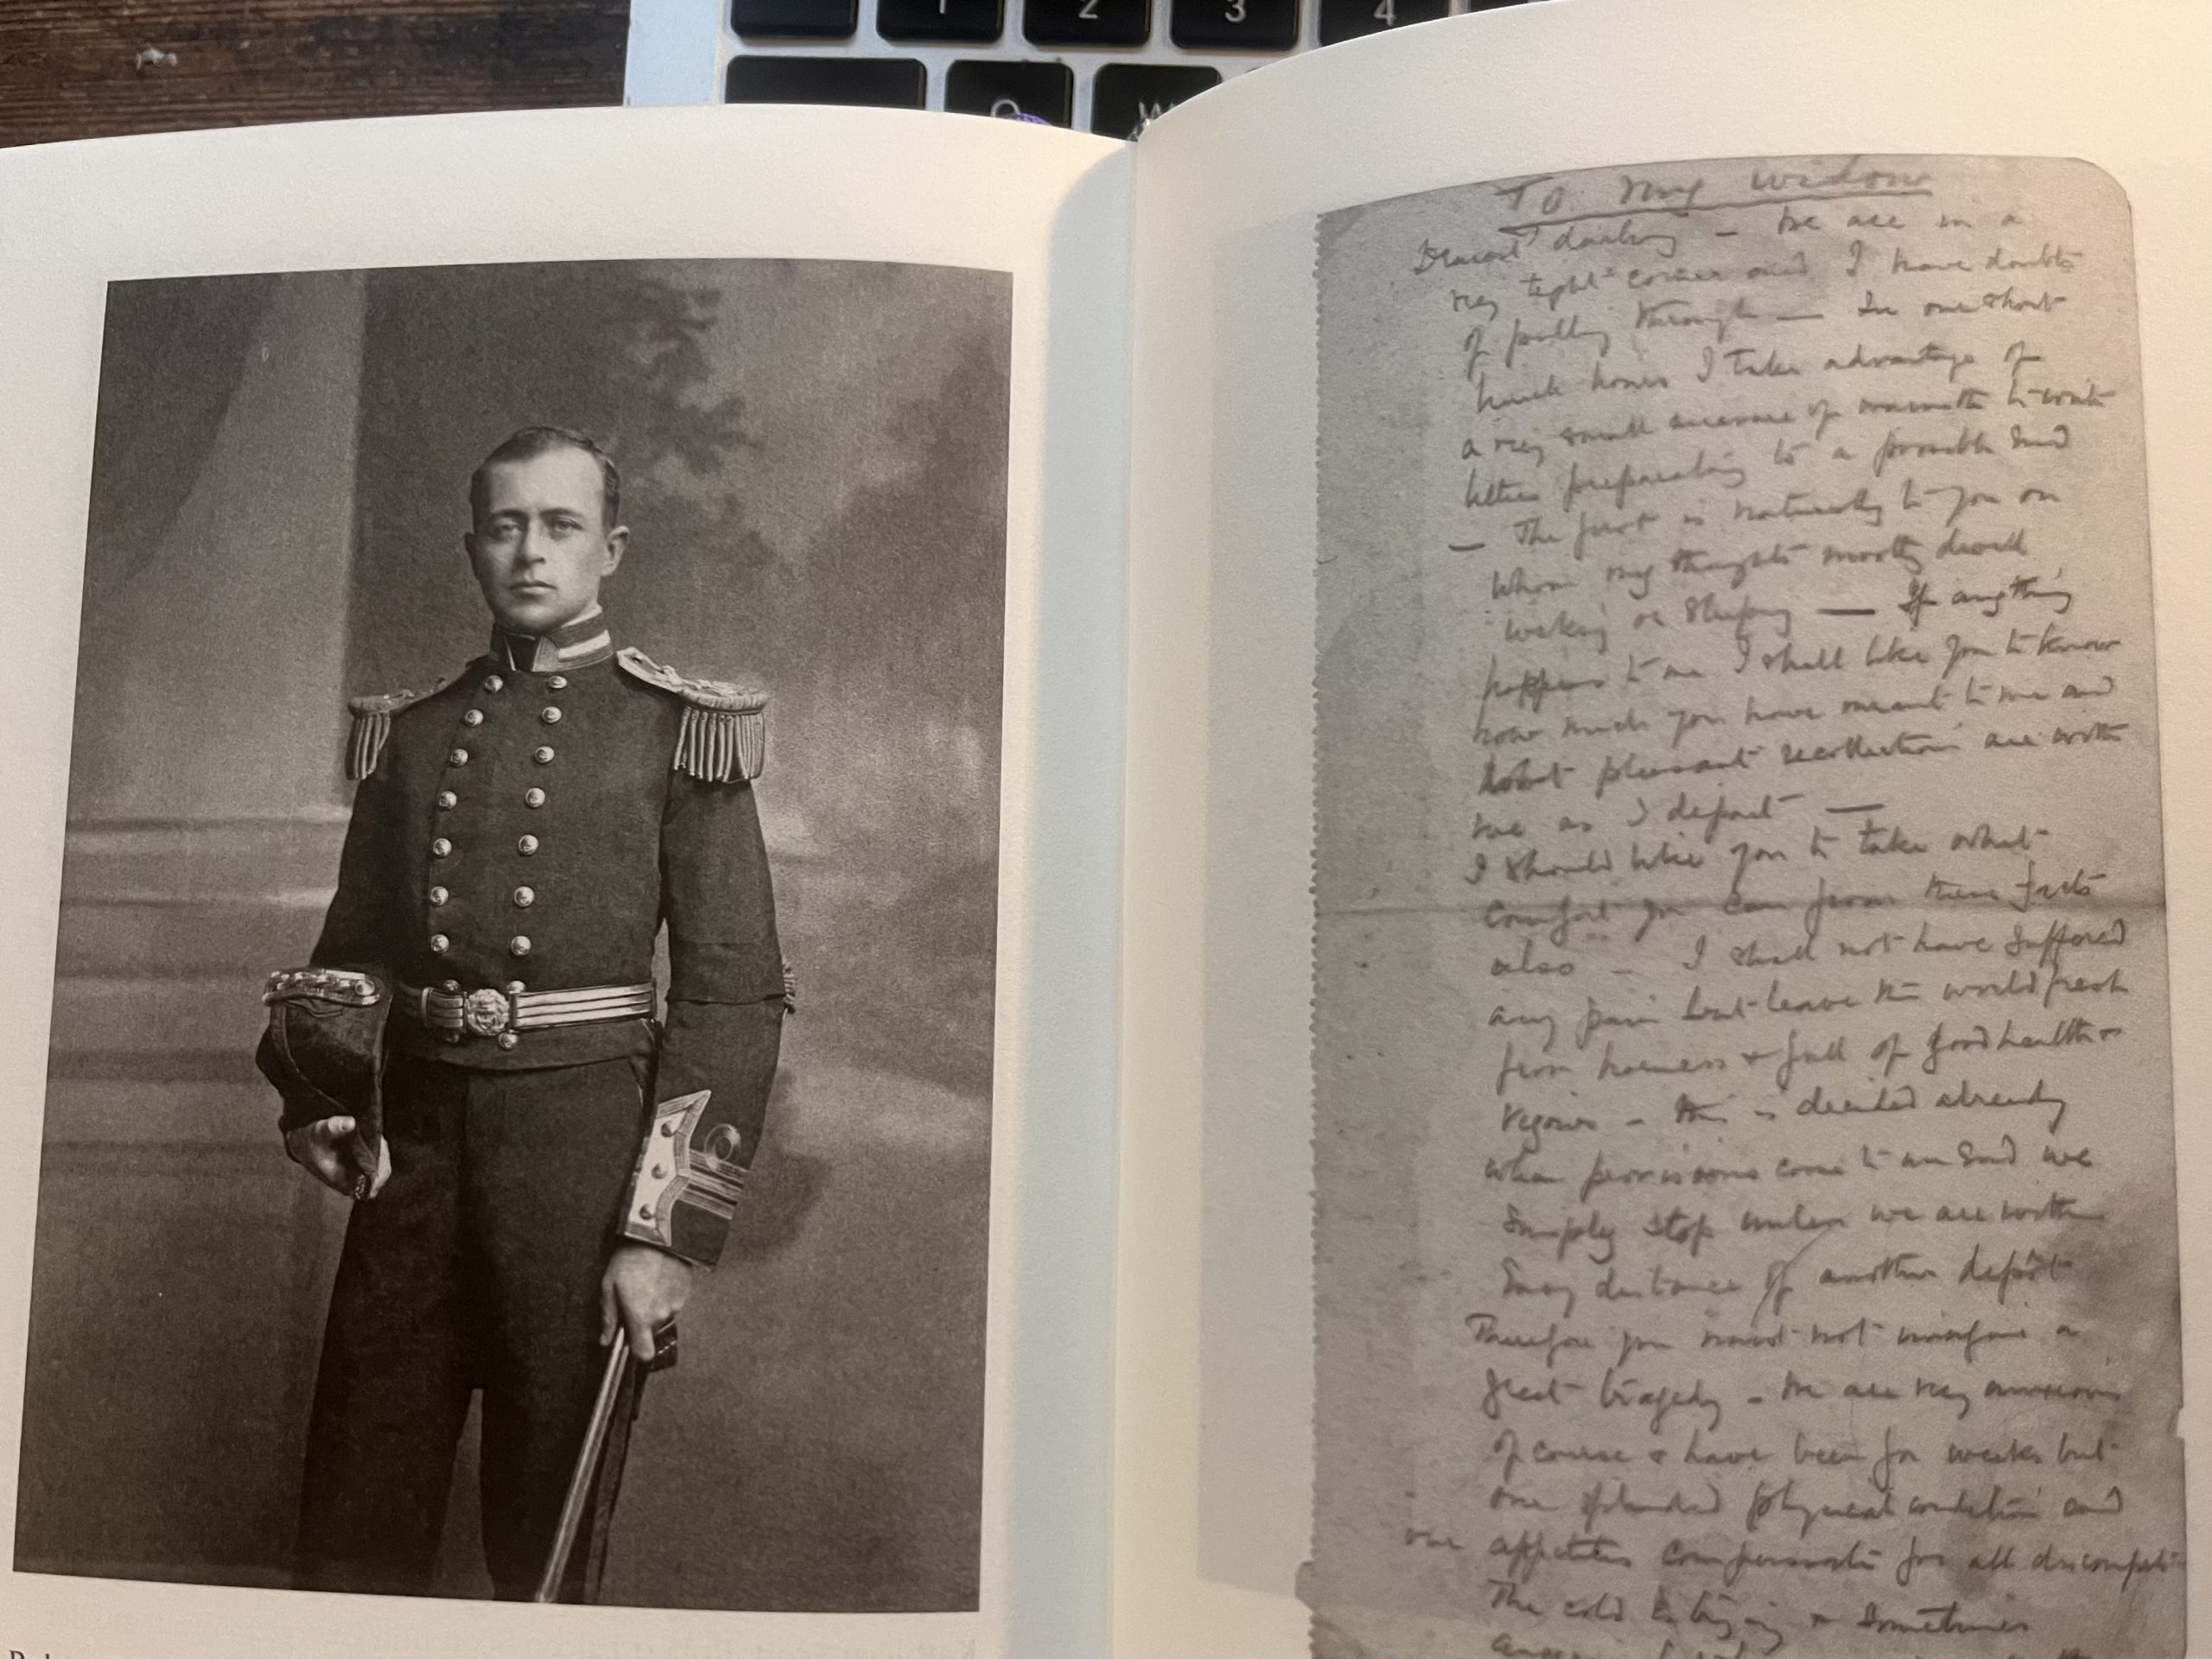 1
2
3
4
Q
W
To my widow
Dearest darling – we are in a
very tight corner and I have doubts
of pulling through – In our short
lunch hours I take advantage of
a very small measure of warmth to write
letters preparatory to a possible end
– The first is naturally to you on
whom my thoughts mostly dwell
waking or sleeping – If anything
happens to me I shall like you to know
how much you have meant to me and
that pleasant recollections are with
me as I depart –
I should like you to take what
comfort you can from these facts
also – I shall not have suffered
any pain but leave the world fresh
from harness & full of good health &
vigour – this is decided already
when provisions come to an end we
simply stop unless we are within
easy distance of another depôt
Therefore you must not imagine a
great tragedy – we are very anxious
of course & have been for weeks but
our splendid physical condition and
our appetites compensate for all discomfort
The cold is biting & sometimes